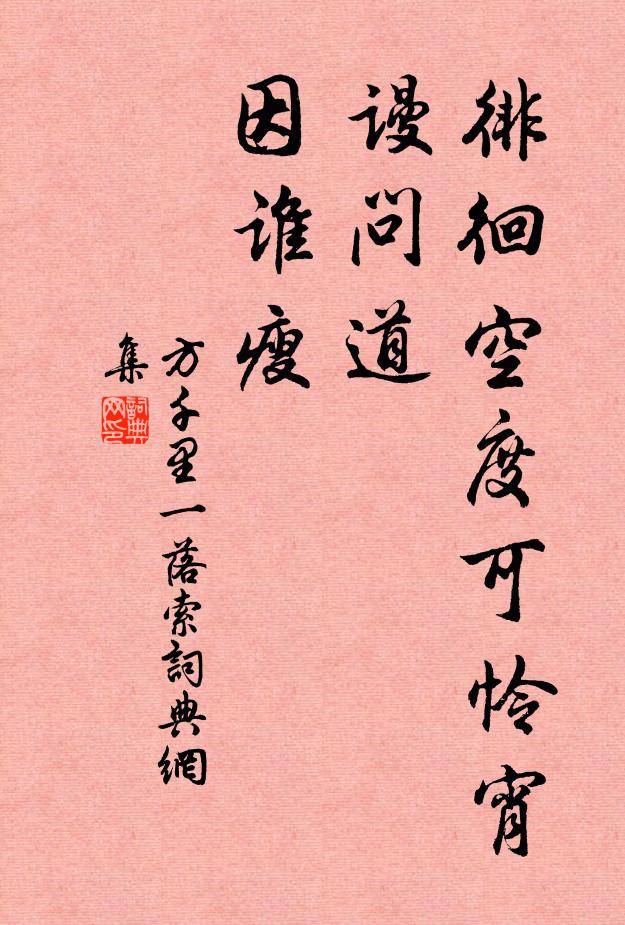 徘徊空度可怜宵
谩问道
因谁瘦
方千里一落索詞典網
集
詞典网印